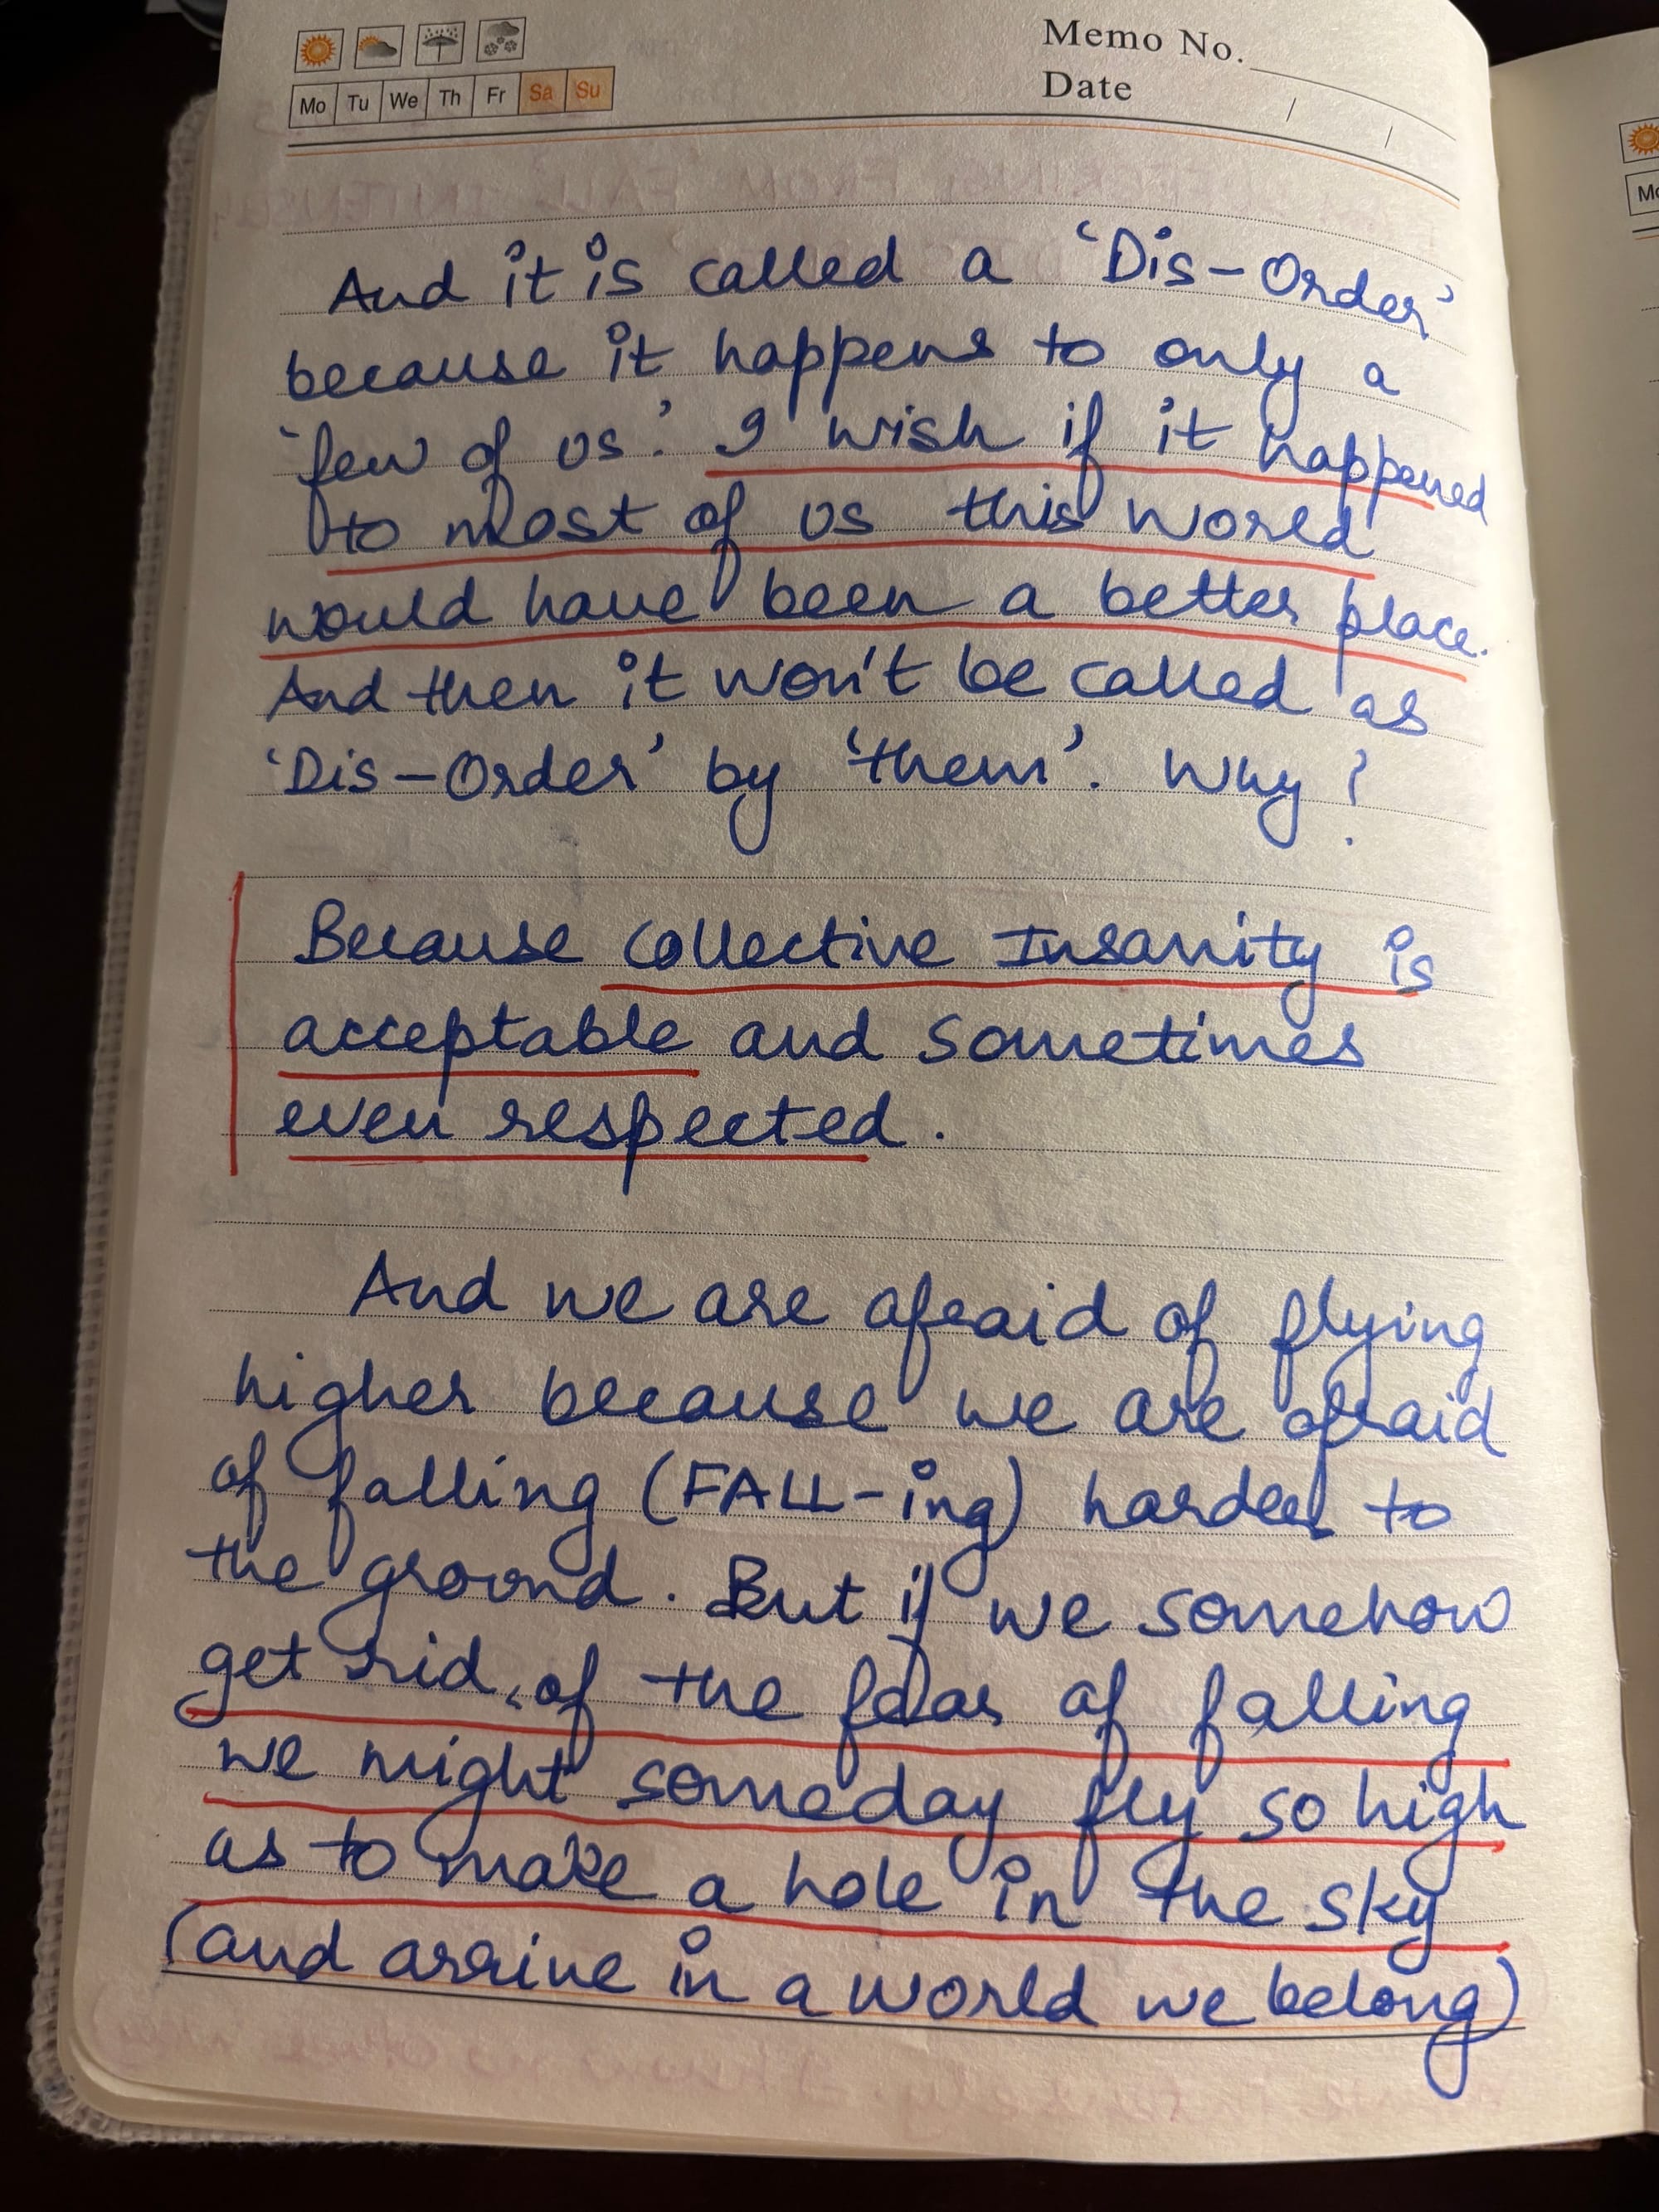 Memo No.
Mo Tu We Th Fr Sa Su
Date / /
And it is called a 'Dis-Order'
because it happens to only a
'few of us'. I wish if it happened
to most of us this world
would have been a better place.
And then it won't be called as
'Dis-Order' by 'them'. Why?
Because collective Insanity is
acceptable and sometimes
even respected.
And we are afraid of flying
higher because we are afraid
of falling (FALL-ing) harder to
the ground. But if we somehow
get rid of the fear of falling
we might someday fly so high
as to make a hole in the sky
(and arrive in a world we belong)
Mo